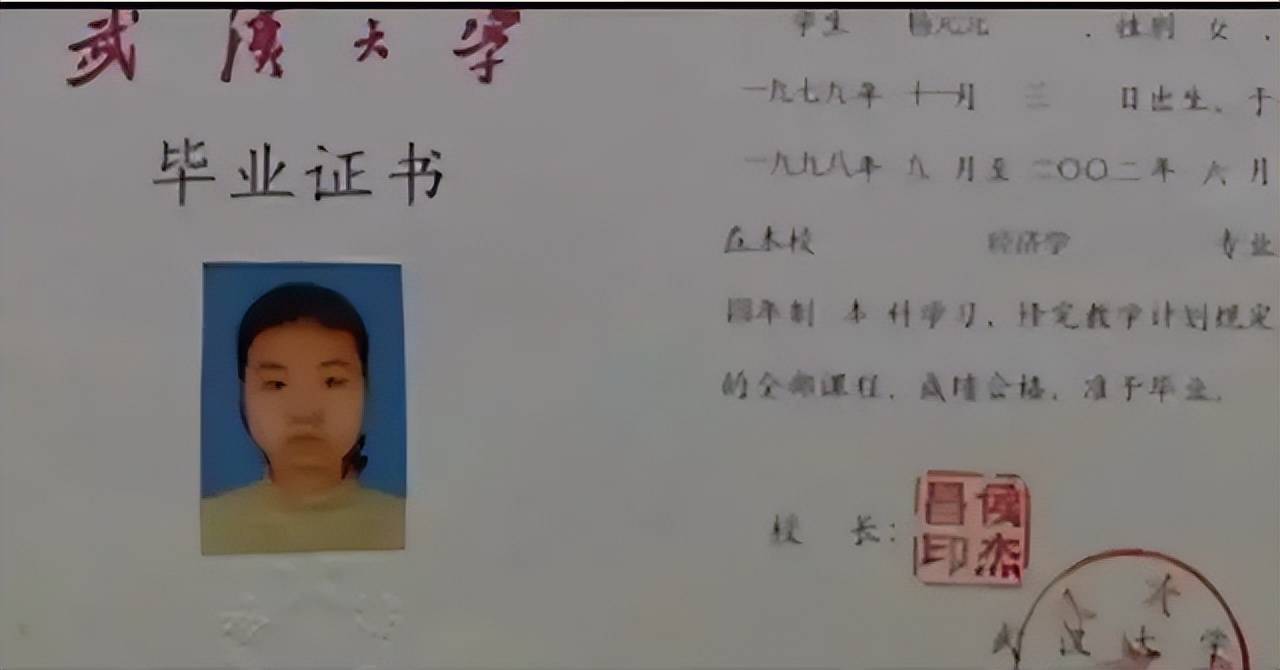 武汉大学
毕业证书
学生 杨元元 ，性别 女 ，
一九七九年 十一月 三 日出生，于
一九九八年 九 月至 二〇〇二年 六 月
在本校 经济学 专业
四年制 本 科学习，修完教学计划规定
的全部课程，成绩合格，准予毕业。
校 长：
侯杰昌印
武 汉 大 学